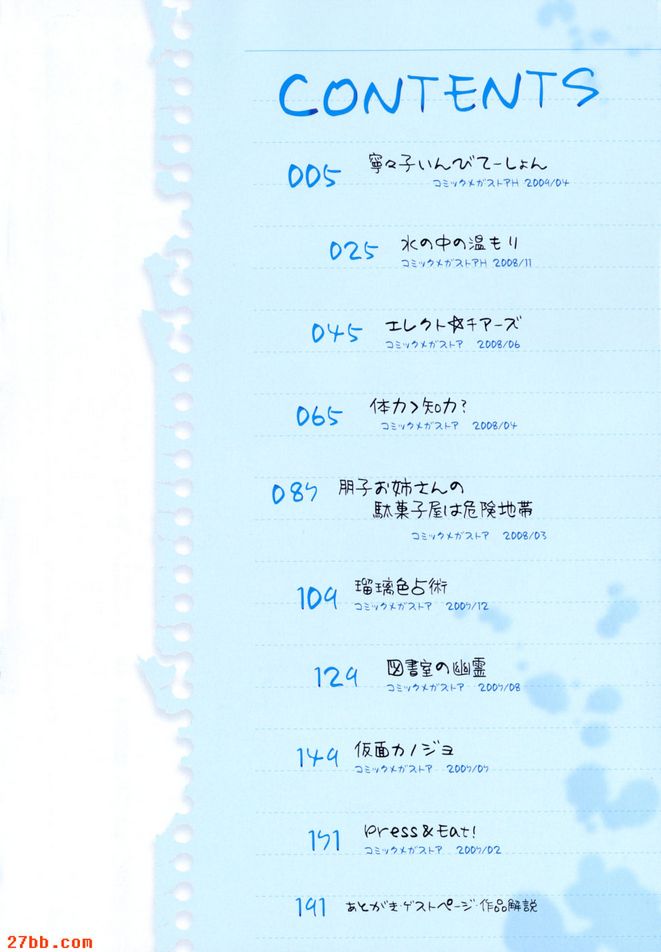 CONTENTS
005 寧々子いんびてーしょん
コミックメガストアH 2009/04
025 水の中の温もり
コミックメガストアH 2008/11
045 エレクト☆チアーズ
コミックメガストア 2008/06
065 体力>知力?
コミックメガストア 2008/04
085 朋子お姉さんの
駄菓子屋は危険地帯
コミックメガストア 2008/03
109 瑠璃色占術
コミックメガストア 2007/12
129 図書室の幽霊
コミックメガストア 2007/08
149 仮面カノジョ
コミックメガストア 2007/07
171 Press&Eat!
コミックメガストア 2007/02
191 あとがき・ゲストページ・作品解説
27bb.com